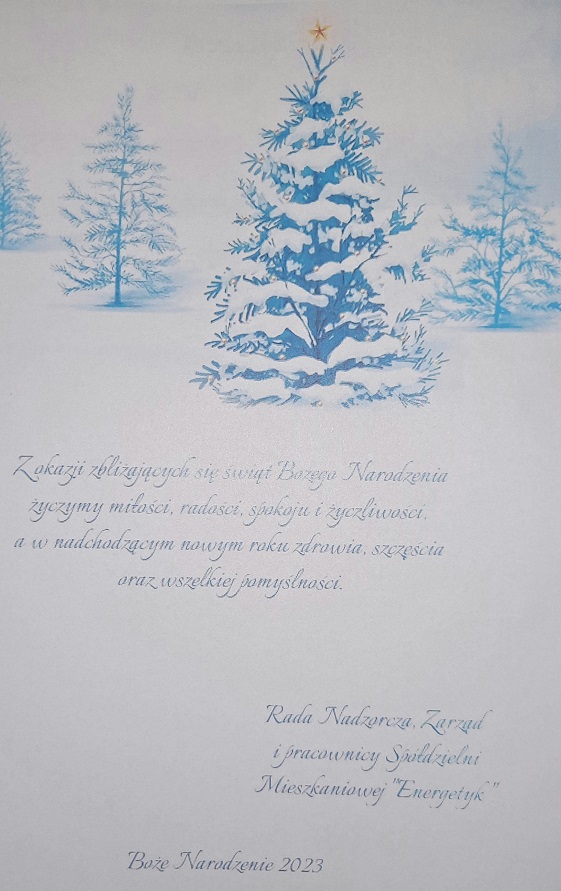 Z okazji zbliżających się świąt Bożego Narodzenia
życzymy miłości, radości, spokoju i życzliwości,
a w nadchodzącym nowym roku zdrowia, szczęścia
oraz wszelkiej pomyślności.
Rada Nadzorcza, Zarząd
i pracownicy Spółdzielni
Mieszkaniowej "Energetyk"
Boże Narodzenie 2023